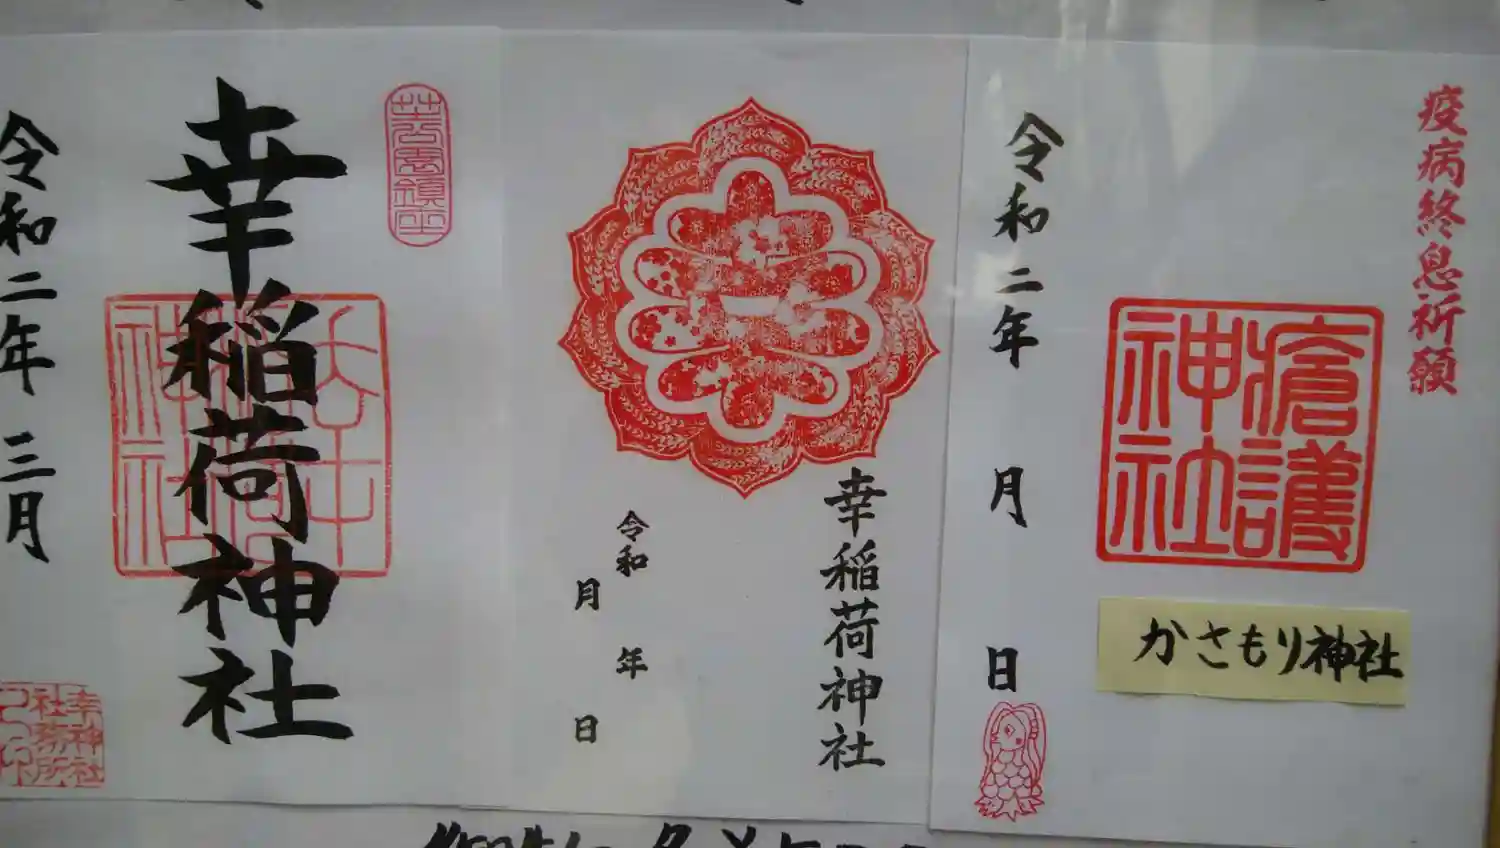 幸稲荷神社
令和二年 三月
幸神社
社務所
幸稲荷神社
令和 年
月 日
疫病終息祈願
瘡護
神社
かさもり神社
令和二年 月 日